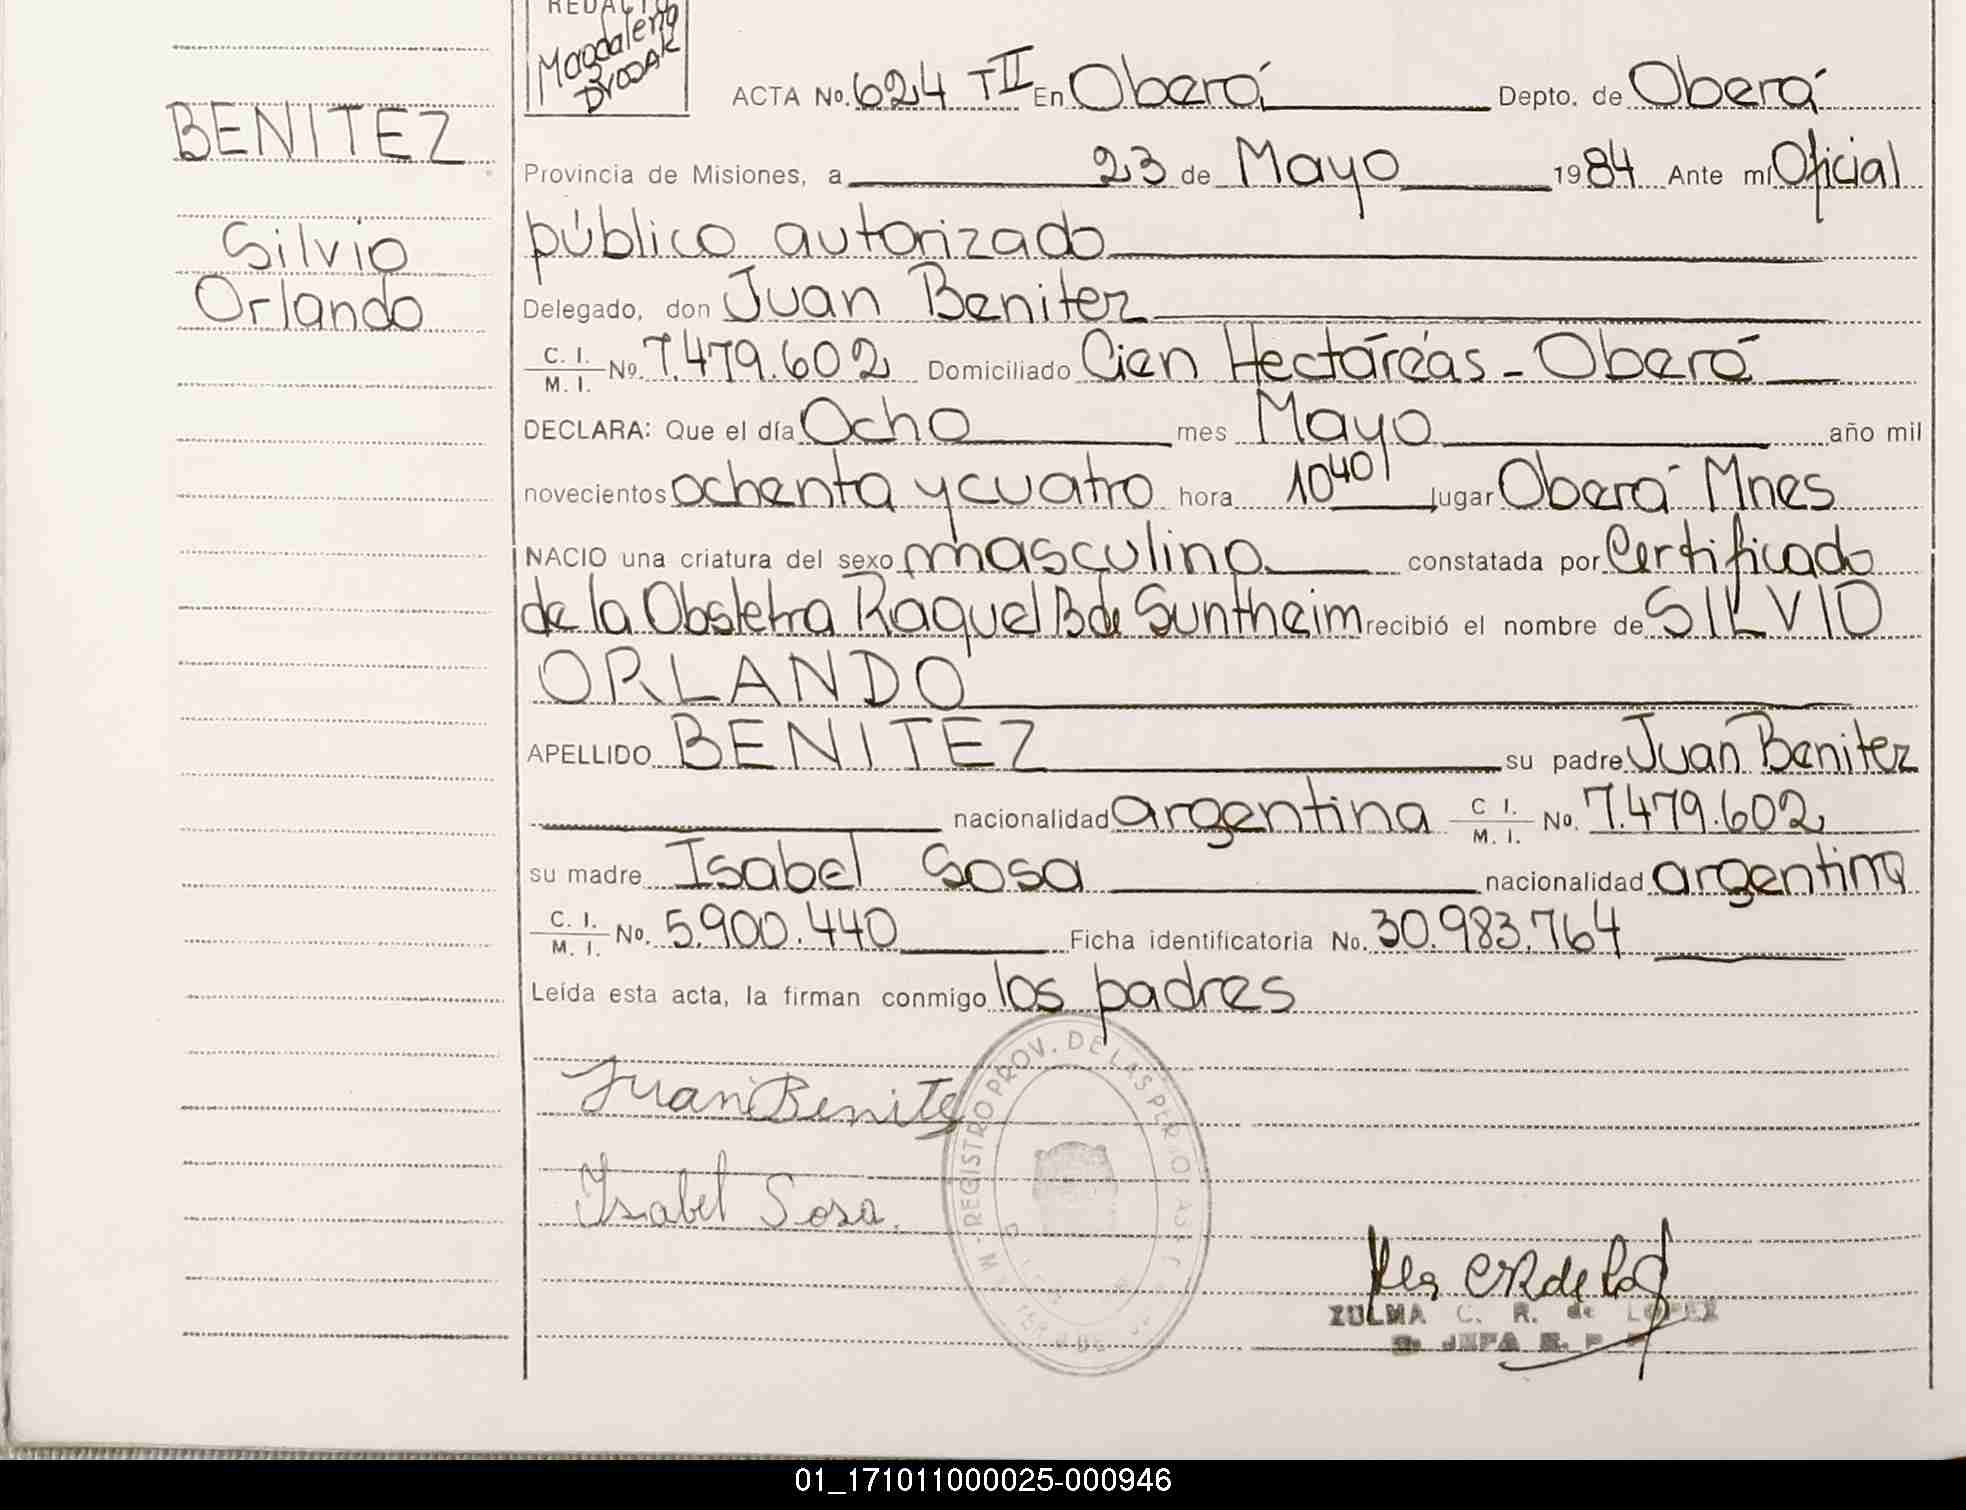 REDACTO
Magdalena
Drozak
BENITEZ
Silvio
Orlando
ACTA No. 624 TII En Oberá Depto. de Oberá
Provincia de Misiones, a 23 de Mayo 1984 Ante mí Oficial
público autorizado
Delegado, don Juan Benitez
C. I. M. I. No. 7.479.602 Domiciliado Cien Hectáreás - Oberá
DECLARA: Que el día Ocho mes Mayo año mil
novecientos ochenta y cuatro hora 10 40 lugar Oberá Mnes
NACIO una criatura del sexo masculino constatada por Certificado
de la Obstetra Raquel B de Suntheim recibió el nombre de SILVIO
ORLANDO
APELLIDO BENITEZ su padre Juan Benitez
nacionalidad argentina C. I. M. I. No. 7.479.602
su madre Isabel Sosa nacionalidad argentina
C. I. M. I. No. 5.900.440 Ficha identificatoria No. 30.983.764
Leída esta acta, la firman conmigo los padres
Juan Benitez
Isabel Sosa.
REGISTRO PROV. DE LAS PERSONAS
ZULMA C. R. de LOPEZ
JEFA
01_171011000025-000946